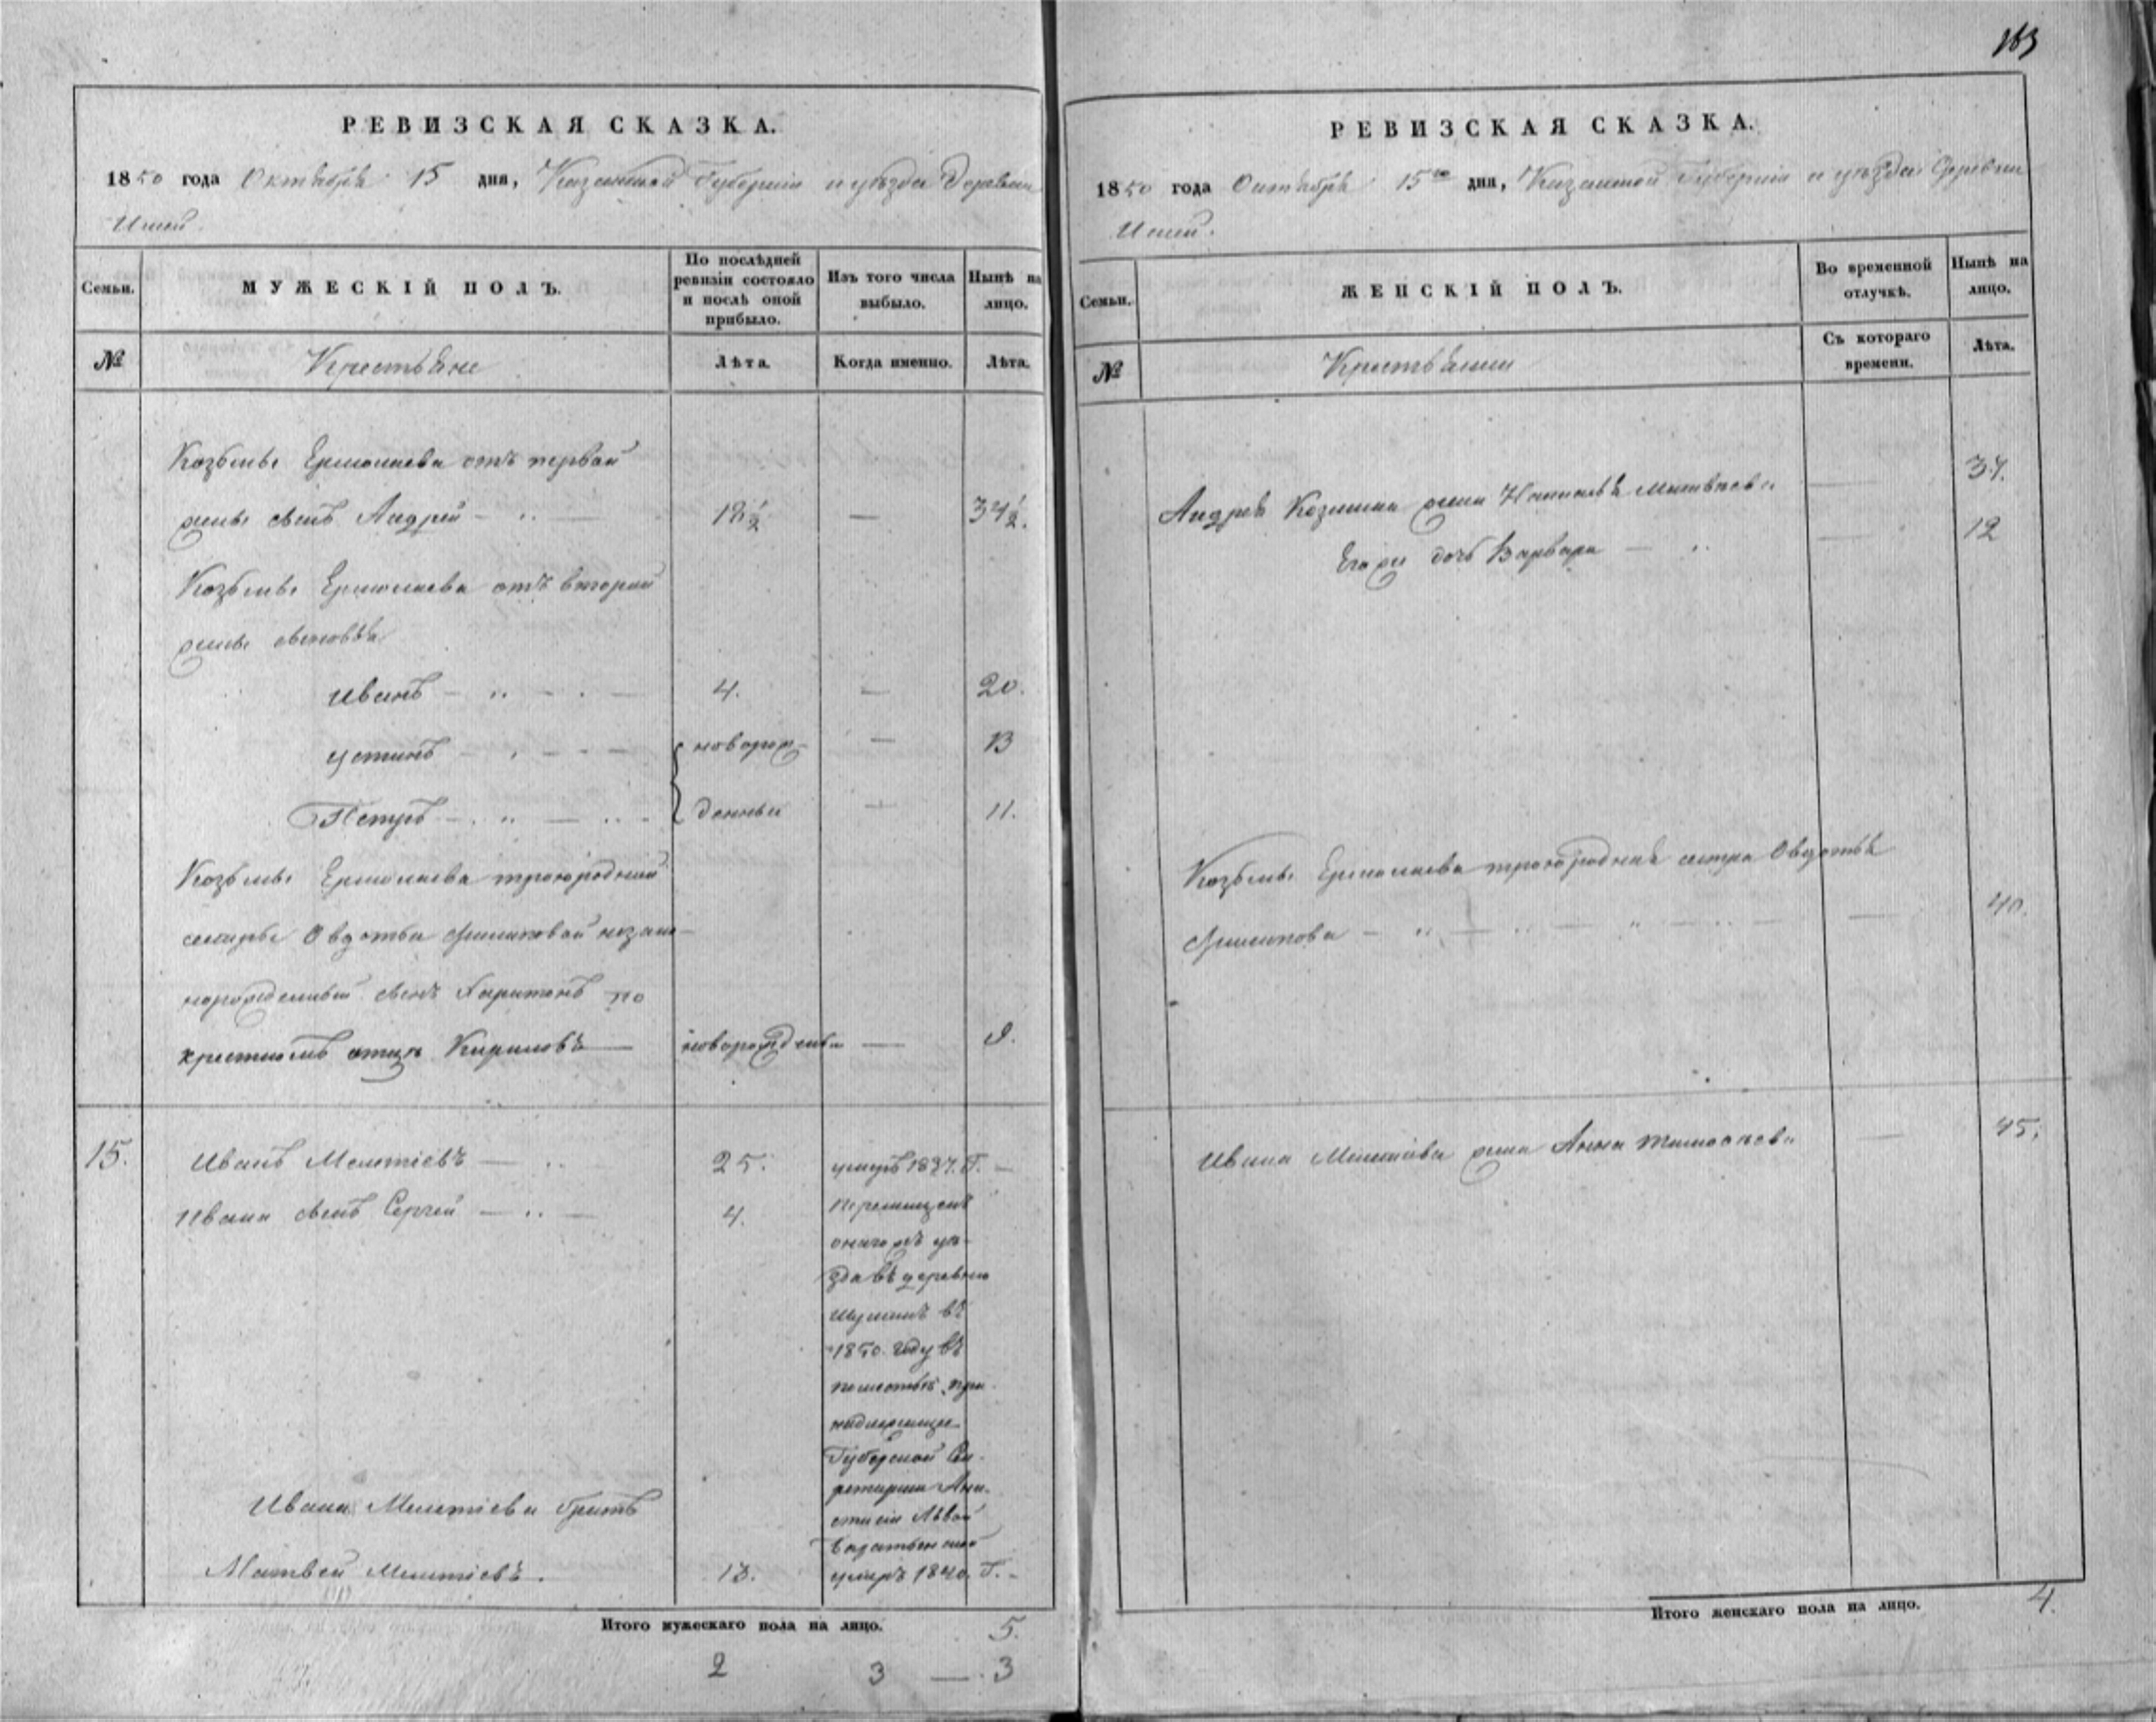 163
РЕВИЗСКАЯ СКАЗКА.
1850 года Октября 15 дня, Казанской Губерніи и уѣзда Деревни
Семьи.
МУЖЕСКІЙ ПОЛЪ.
По послѣдней ревизіи состояло и послѣ оной прибыло.
Изъ того числа выбыло.
Нынѣ на лицо.
№
Крестьяне
Лѣта.
Когда именно.
Лѣта.
Козьмы Ермолаева отъ первой
жены сынъ Андрей 18½ — 34½.
Козьмы Ермолаева отъ второй
жены сыновья
Иванъ 4. — 20.
Устинъ новорож- — 13
Петръ денныи — 11.
Козьмы Ермолаева троюродной
сестры Овдотьи Филиповой незако-
норожденный сынъ Харитонъ по
крестномъ отцѣ Кириловъ — новорожденны —
15. Иванъ Мелетіевъ — 25. умеръ 1837. Г. —
Ивана сынъ Сергей — 4. Перемещенъ
онагожъ уѣ-
зда въ деревню
въ
1850. году въ
поместье при-
надлежащее
Губернской Се-
кретарши Ана-
стасіи Львовой
Ивана Мелетіева братъ
Матвей Мелетіевъ. 13. умеръ 1840. Г. -
Итого мужескаго пола на лицо. 5.
2 3 — 3
РЕВИЗСКАЯ СКАЗКА.
1850 года Октября 15го дня, Казанской Губерніи и уѣзда Деревни
Семьи.
ЖЕНСКІЙ ПОЛЪ.
Во временной отлучкѣ.
Нынѣ на лицо.
№
Крестьянки
Съ котораго времени.
Лѣта.
Андрея Козмина жена Наталья Матвѣева — 34.
Егоже дочь Варвара — 12
Козьмы Ермолаева троюродная сестра Овдотья
Филипова — 40.
Ивана Мелетіева жена Анна Тимофѣева — 45.
Итого женскаго пола на лицо. 4.